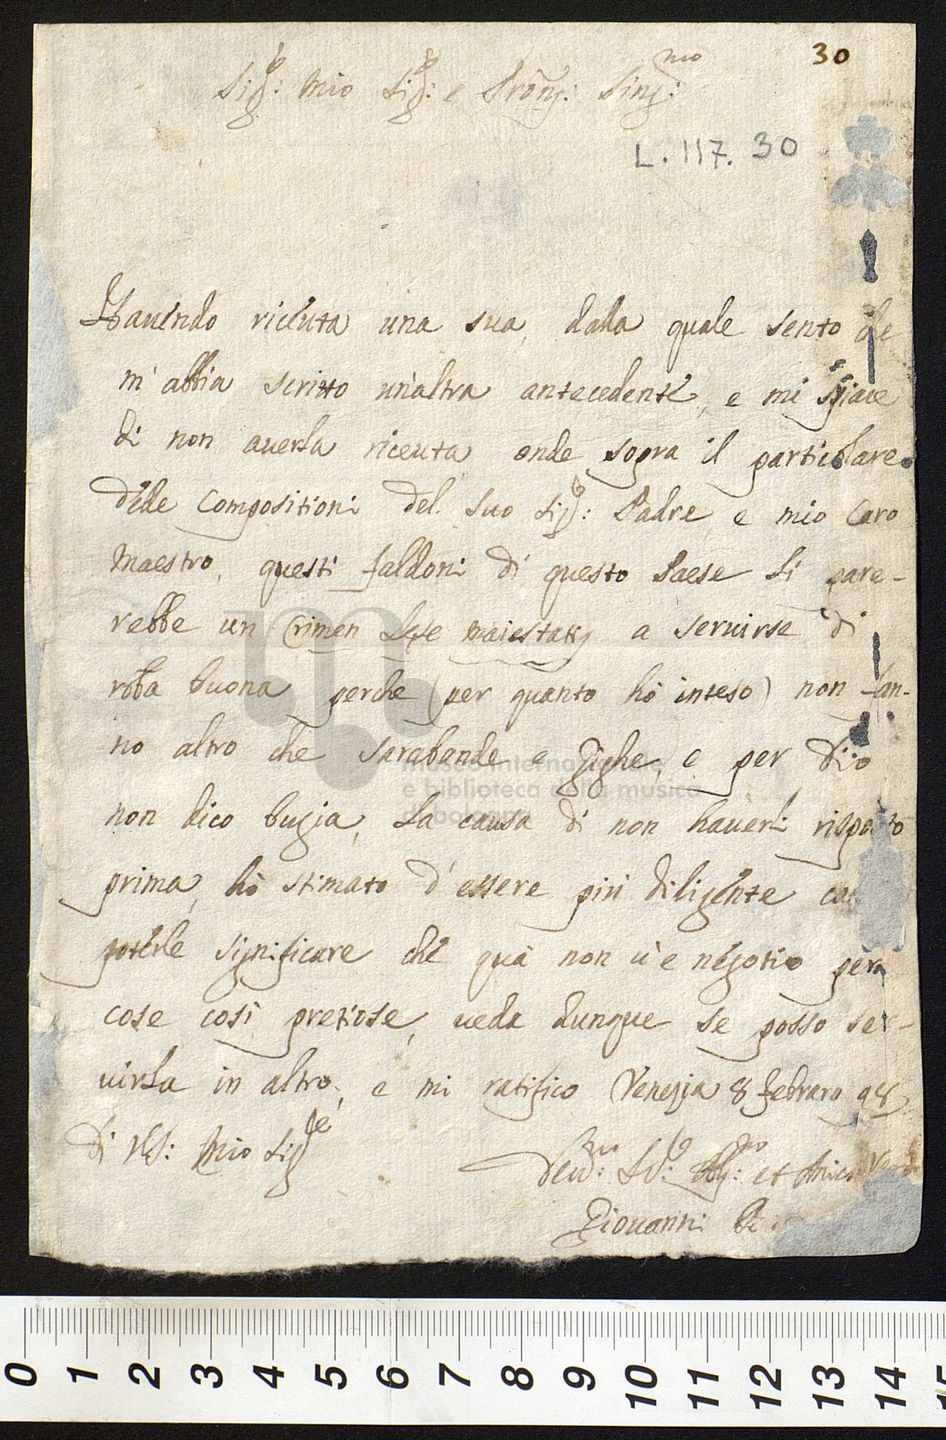 30
Sig.r: Mio Sig.r: e Pron: Sing:mo
L. 117. 30
Havendo riceuta una sua, dalla quale sento che
m'abbia scritto un'altra antecedente, e mi spiace
di non averla riceuta, onde sopra il particolare
delle Compositioni del suo Sig.r: Padre, e mio Caro
Maestro, questi faldoni di questo Paese li pare-
rebbe un Crimen Lese maiestatis a servirse di
roba buona perche (per quanto hò inteso) non fan-
no altro che sarabande e Gighe, e per Dio
non dico bugia, La causa di non haverli risposto
prima, hò stimato d'essere più diligente
poterle significare che quà non v'e negotio per
cose così pretiose, veda dunque se posso ser-
virla in altro, e mi ratifico Venezia 8 febraro 98
di VS: Mio Sig.re
Dev.mo: Se.r: Obl.mo: et Amico
Giovanni
museo internazionale
e biblioteca della musica
di bologna
0 1 2 3 4 5 6 7 8 9 10 11 12 13 14 15